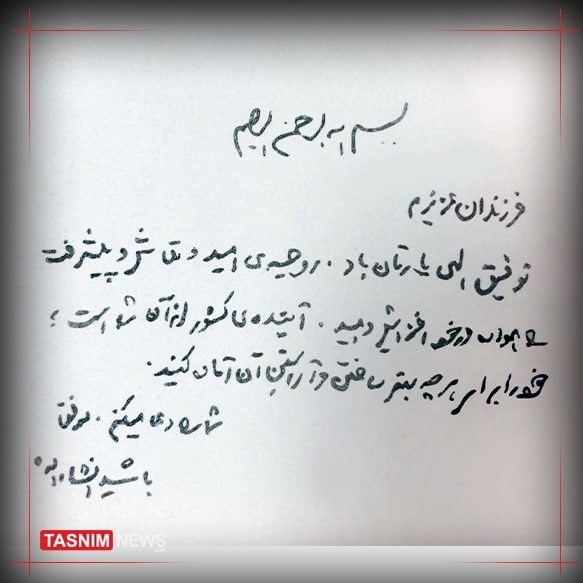 بسم الله الرحمن الرحیم
فرزندان عزیزم
توفیق الهی یارتان باد. روحیه‌ی امید و تلاش و پیشرفت
در خود افزایش دهید. آینده‌ی کشور از آن شما است؛
خود را برای هر چه بهتر ساختن و آراستن آن آماده کنید.
شما را دعا میکنم. موفق
باشید انشاءالله
TASNIM NEWS